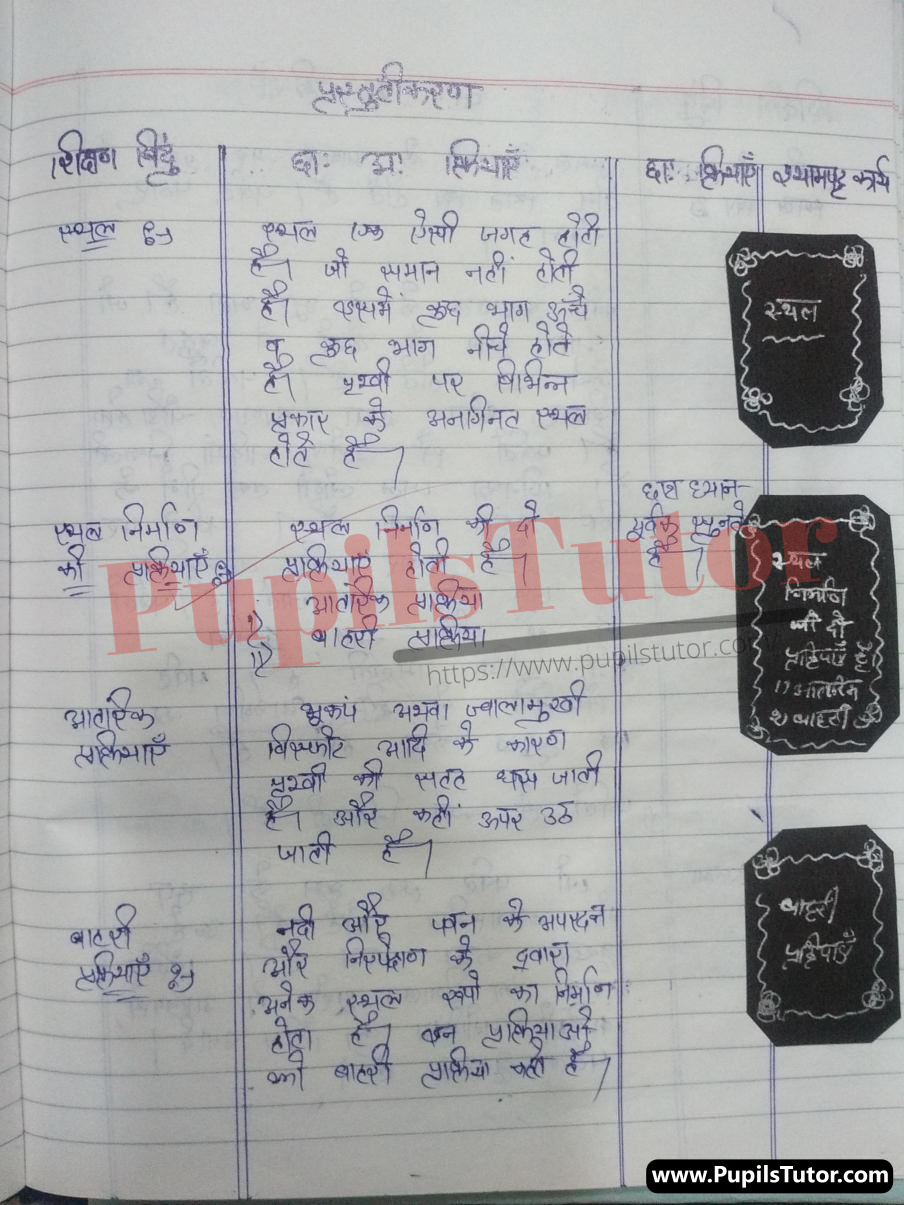 प्रस्तुतीकरण
शिक्षण बिंदु
छा: अ: क्रियाएँ
छा: क्रियाएँ
श्यामपट्ट कार्य
स्थल :-
स्थल एक ऐसी जगह होती
है। जो समान नहीं होती
है। इसमें कुछ भाग ऊंचे
व कुछ भाग नीचे होते
है। पृथ्वी पर विभिन्न
प्रकार के अनगिनत स्थल
होते है।
स्थल
स्थल निर्माण
की प्रक्रियाएँ :-
स्थल निर्माण की दो
प्रक्रियाएं होती है।
आतंरिक प्रक्रिया
बाहरी प्रक्रिया
छात्र ध्यान-
पूर्वक सुनते
है।
स्थल
निर्माण
की दो
प्रक्रियाएँ है।
1) आतंरिक
2) बाहरी
आतंरिक
प्रक्रियाएँ
भूकपं अथवा ज्वालामुखी
विस्फोट आदि के कारण
पृथ्वी की सतह धस जाती
है। और कहीं ऊपर उठ
जाती है।
बाहरी
प्रक्रियाएँ :-
नदी और पवन के अपरदन
और निक्षेपण के द्वारा
अनेक स्थल रूपों का निर्माण
होता है। इन प्रक्रियाओं
को बाहरी प्रक्रिया कहते है।
बाहरी
प्रक्रियाएँ
PupilsTutor
https://www.pupilstutor.com/
www.PupilsTutor.com